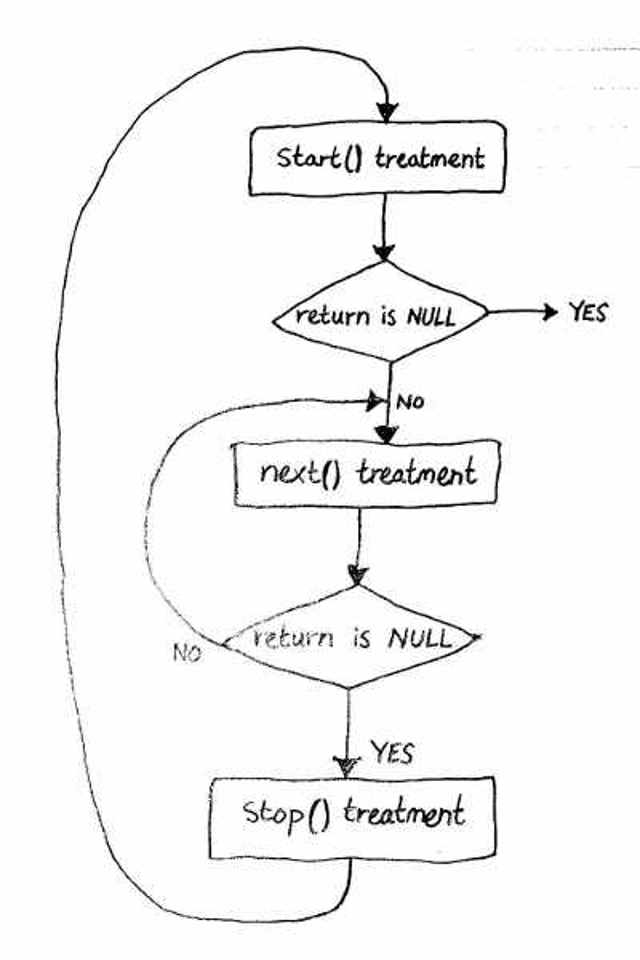 Start() treatment
return is NULL
YES
NO
next() treatment
return is NULL
NO
YES
Stop() treatment